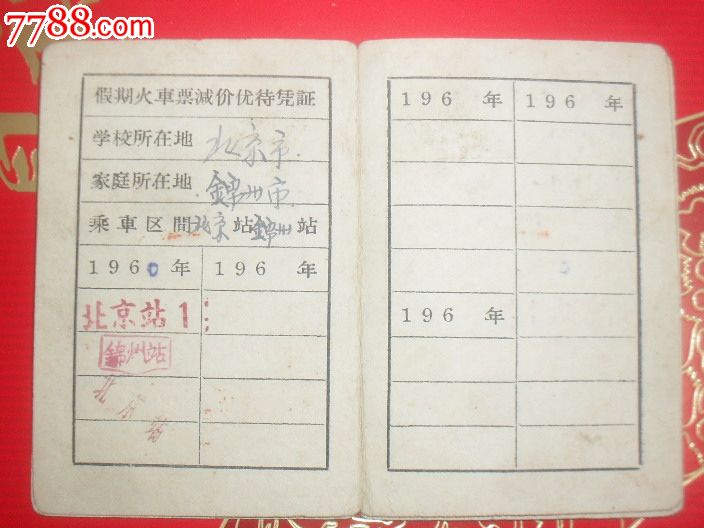 7788.com
假期火車票減价优待凭証
学校所在地 北京市
家庭所在地 錦州市
乘車区間北京站錦州站
1960年 196 年
北京站1
錦州站
196 年 196 年
196 年